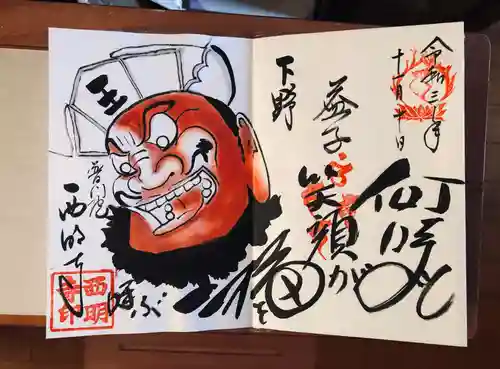 令和三年
十一月廿日
笑顔が
益子
下野
福を
呼ぶ
王
普門院
西明寺
西明
寺印